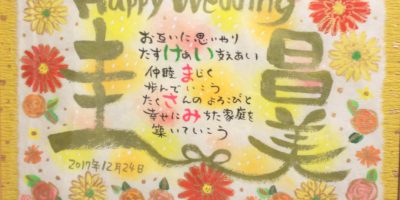 Happy Wedding
圭
昌美
お互いに思いやり
たすけあい支えあい
仲睦まじく
歩んでいこう
たくさんのよろこびと
幸せにみちた家庭を
築いていこう
2017年12月24日